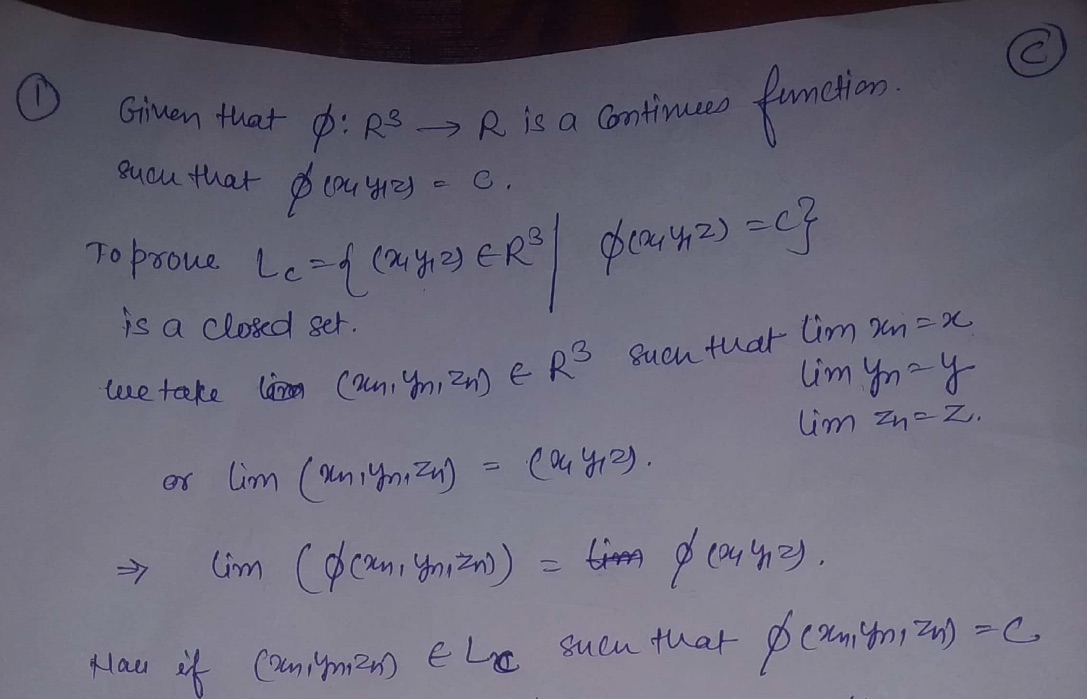 ① Given that ϕ: R³ → R is a Continuees function. Ⓒ
such that ϕ(x,y,z) = C.
To prove Lc = { (x,y,z) ∈ R³ | ϕ(x,y,z) = c}
is a closed set.
we take (xn, yn, zn) ∈ R³ such that lim xn = x
lim yn = y
lim zn = z.
or lim (xn, yn, zn) = (x, y, z).
⇒ lim (ϕ(xn, yn, zn)) = ϕ(x, y, z).
if (xn, yn, zn) ∈ Lc such that ϕ(xn, yn, zn) = C